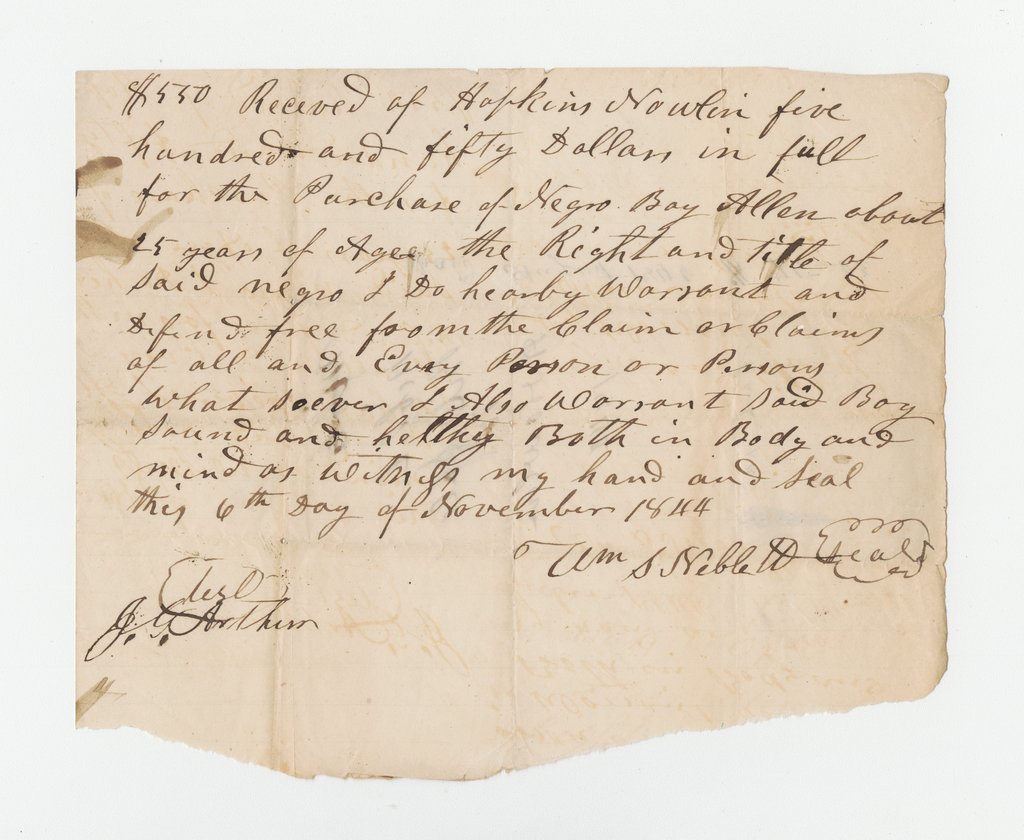 $550 Receved of Hopkins Nowlin five
hundred and fifty Dollars in full
for the Purchase of Negro Boy Allen about
25 years of Age the Right and title of
Said negro I Do hearby Warrant and
Defend free from the Claim or Claims
of all and Evry Person or Persons
what soever I Also Warrant said Boy
Sound and helthy Both in Body and
mind as Witness my hand and Seal
this 6th Day of November 1844
Wm S Neblett Seal
Test
J. G. Arthur